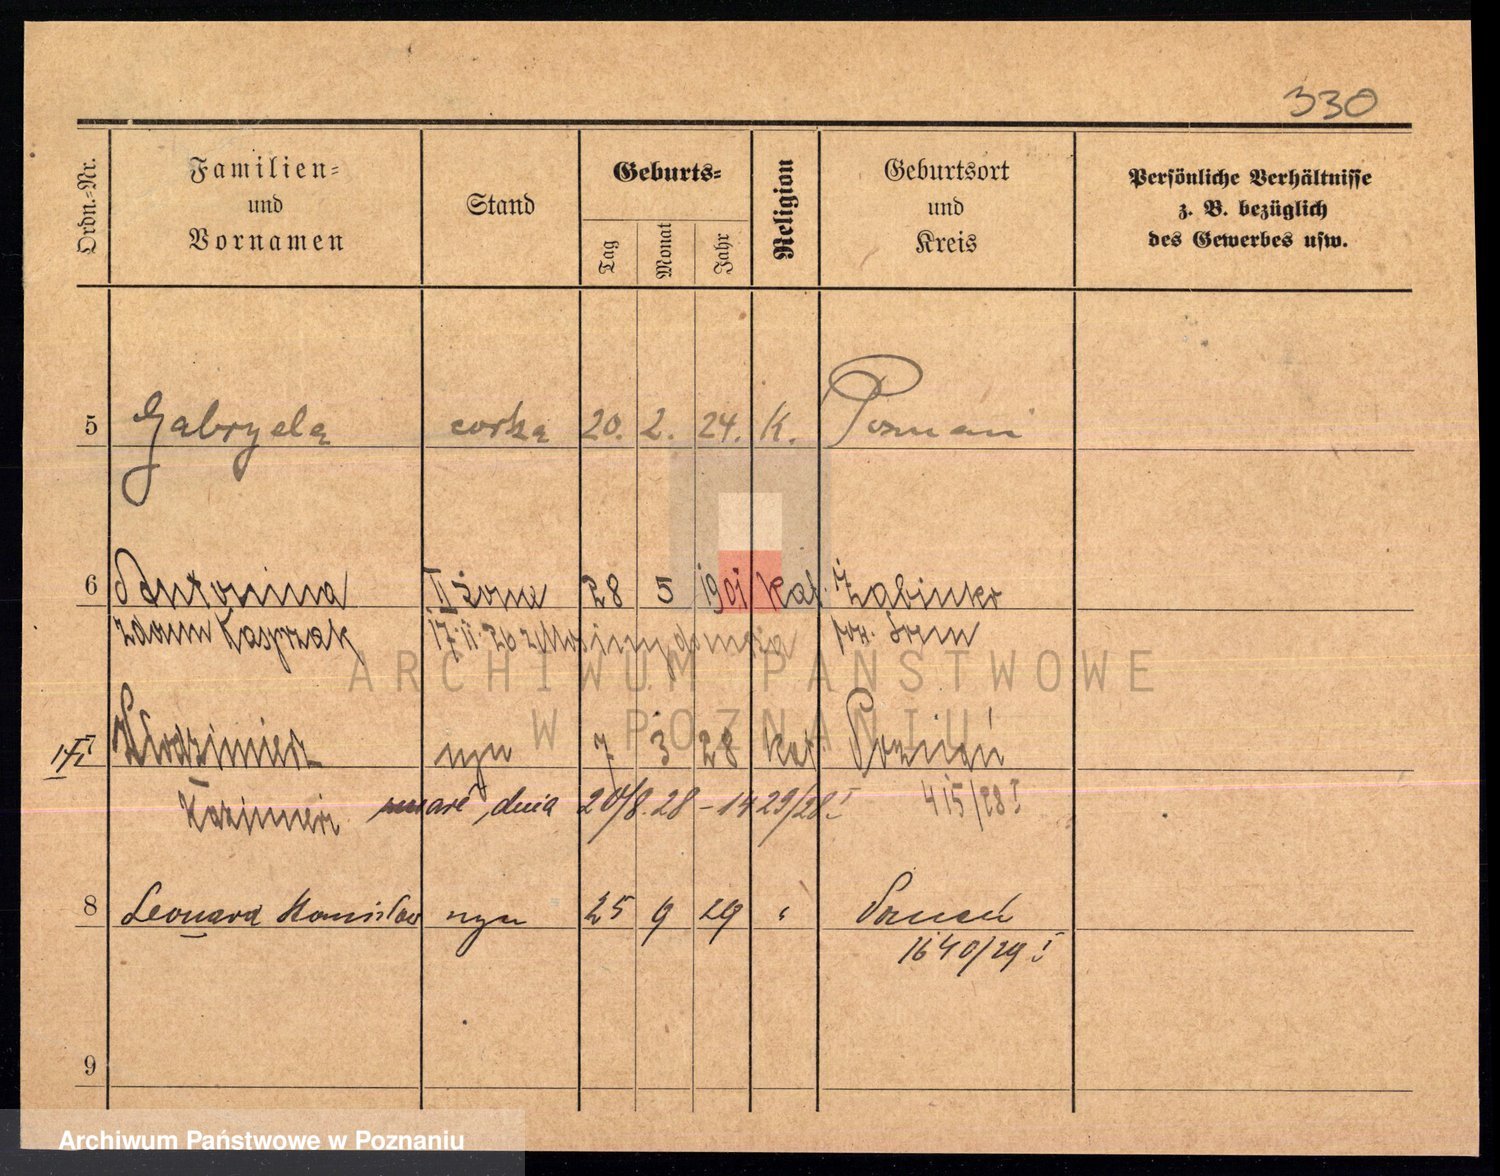 330
Ordn.-Nr.
Familien-
und
Vornamen
Stand
Geburts-
Tag
Monat
Jahr
Religion
Geburtsort
und
Kreis
Persönliche Verhältnisse
z. B. bezüglich
des Gewerbes usw.
5 Gabryela córka 20. 2. 24. K. Poznań
6 Antonina II żona 28 5 1901 kat. Żabinko
zdom Kasprzak 17.11.26 pow. Śrem
Włodzimierz syn 7 3 28 kat. Poznań
Kazimierz zmarł dnia 20/8.28 - 1429/28 I 415/28 I
8 Leonard Stanisław syn 25 9 29 " Poznań
1640/29 I
9
ARCHIWUM PAŃSTWOWE
W POZNANIU
Archiwum Państwowe w Poznaniu